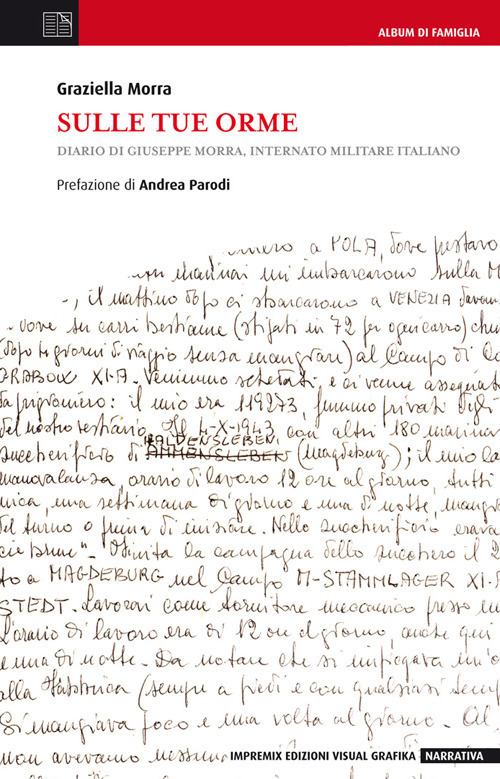 ALBUM DI FAMIGLIA
Graziella Morra
SULLE TUE ORME
DIARIO DI GIUSEPPE MORRA, INTERNATO MILITARE ITALIANO
Prefazione di Andrea Parodi
a POLA, dove restavo
marinai mi imbarcarono sulla M
il mattino dopo ci sbarcarono a VENEZIA
dove su carri bestiame (stipati in 72 per ogni carro) che
(dopo giorni di viaggio senza mangiare) al Campo di
GRABOW XI-A. Venimmo schedati, e ci venne assegnat
da prigioniero: il mio era 119273, fummo privati degli
del nostro vestiario. Il 4-X-1943 con altri 180 marinai
HALDENSLEBEN
zuccherificio di AMMENSLEBEN (Magdeburg); il mio la
manovalanza, orario di lavoro 12 ore al giorno, tutti
nica, una settimana di giorno e una di notte, mangia
del turno o prima di iniziare. Nello zuccherificio erava
Finita la campagna dello zucchero il 2
to a MAGDEBURG nel Campo M-STAMMLAGER XI-
STEDT. Lavorai come tornitore meccanico presso
L'orario di lavoro era di 12 ore al giorno, anche qui
e una di notte. Da notare che si impiegava un'o
alla Fabbrica (sempre a piedi e con qualsiasi temp
Si mangiava poco e una volta al giorno. Al
non avevamo nessun
IMPREMIX EDIZIONI VISUAL GRAFIKA NARRATIVA